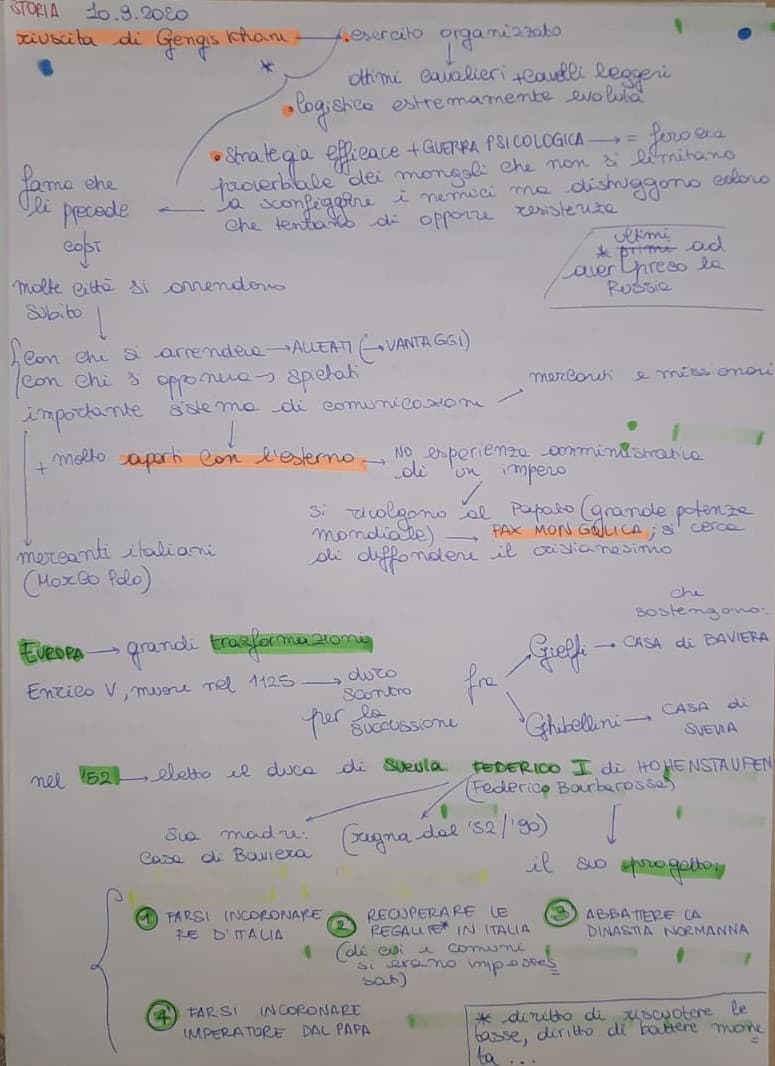 STORIA 10.9.2020
riuscita di Gengis Khan → • esercito organizzato
*
ottimi cavalieri + cavalli leggeri
• logistica estremamente evoluta
• strategia efficace + GUERRA PSICOLOGICA → = ferocia
proverbiale dei mongoli che non si limitano
a sconfiggere i nemici ma distruggono coloro
che tentano di opporre resistenza
fama che
li precede
così
molte città si arrendono
subito
ultimi
* primi ad
aver preso la
Russia
con chi si arrendeva → ALLEATI (→ VANTAGGI)
con chi si opponeva → spietati
importante sistema di comunicazione
mercanti e missionari
+ molto aperti con l'esterno → No esperienza amministrativa
di un impero
si rivolgono al Papato (grande potenza
mondiale) → PAX MONGOLICA; si cerca
di diffondere il cristianesimo
mercanti italiani
(Marco Polo)
EUROPA → grandi trasformazioni
Enrico V, muore nel 1125 → duro
scontro
per la
successione
fra
che
sostengono:
Guelfi → CASA di BAVIERA
Ghibellini → CASA di
SVEVIA
nel '52 → eletto il duca di Svevia FEDERICO I di HOHENSTAUFEN
(Federico Barbarossa)
sua madre:
Casa di Baviera
(regna dal '52/'90)
il suo progetto:
1 FARSI INCORONARE
RE D'ITALIA
2 RECUPERARE LE
REGALIE* IN ITALIA
(di cui i comuni
si erano imposses
sati)
3 ABBATTERE LA
DINASTIA NORMANNA
4 FARSI INCORONARE
IMPERATORE DAL PAPA
* diritto di riscuotere le
tasse, diritto di battere mone
ta ...